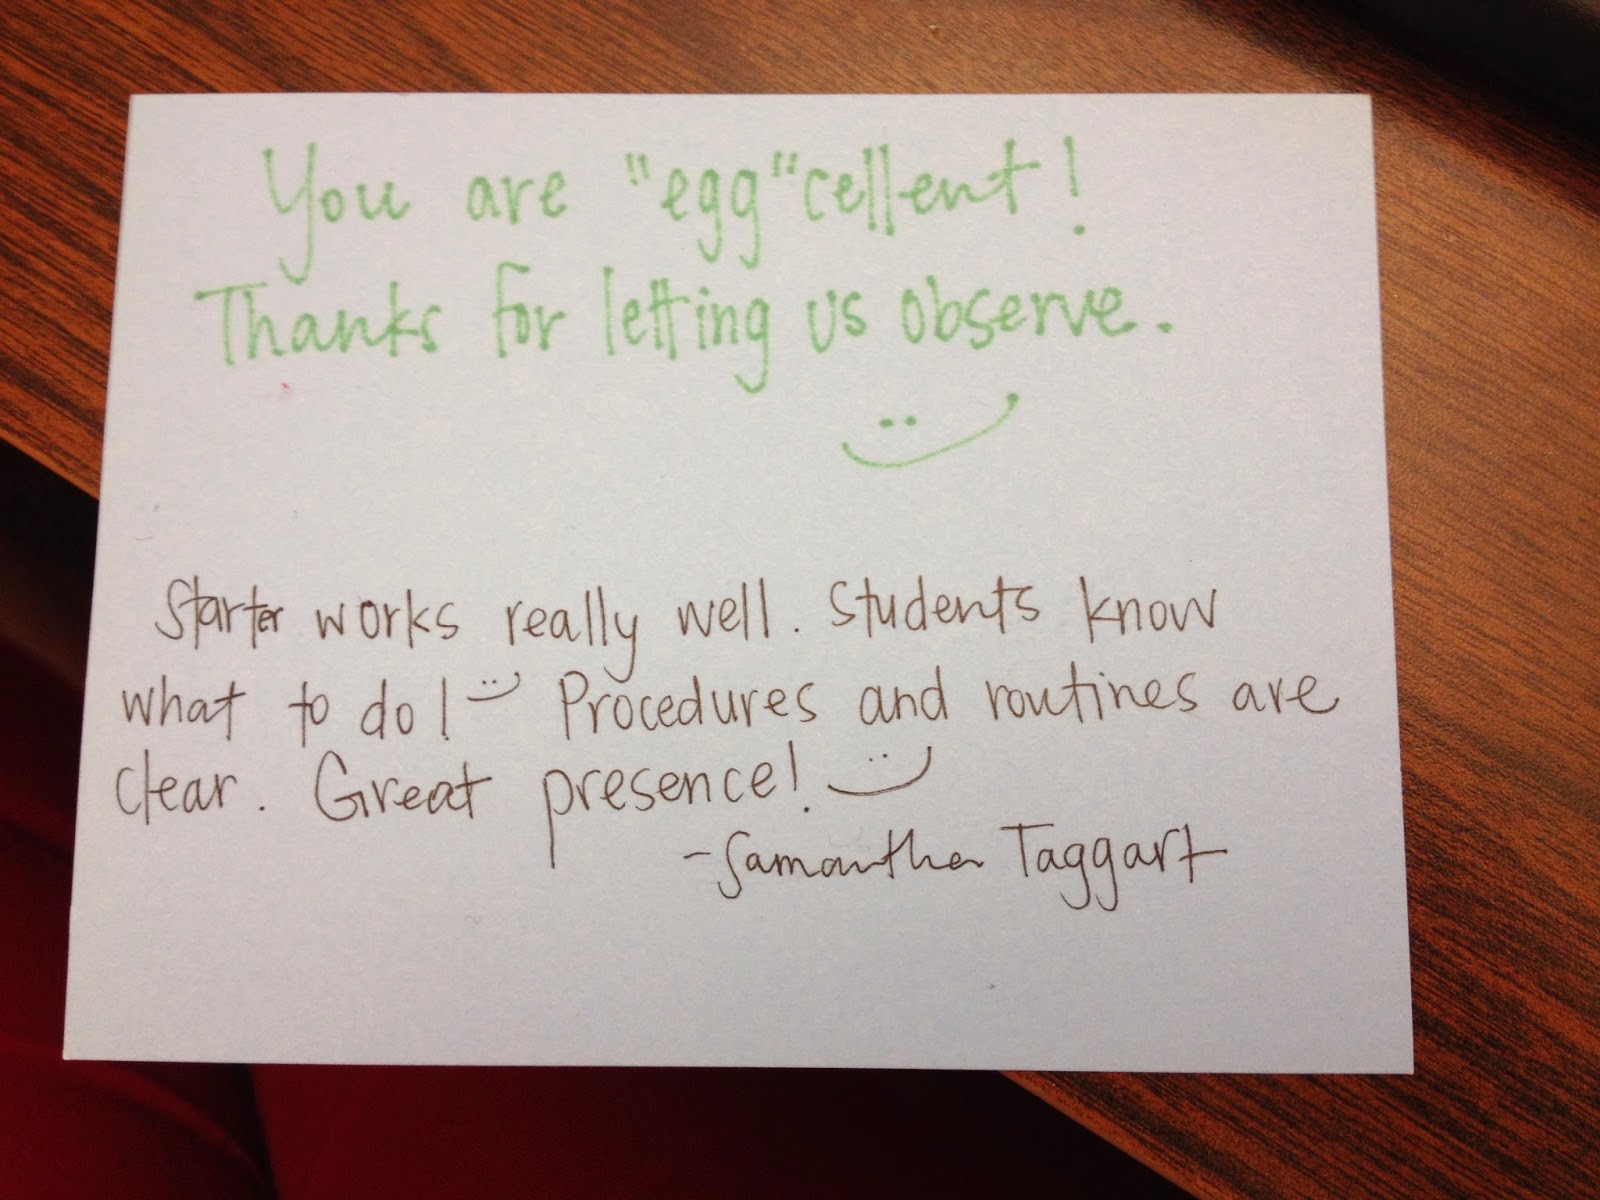 You are "egg"cellent!
Thanks for letting us observe.
Starter works really well. Students know
what to do! Procedures and routines are
clear. Great presence!
-Samantha Taggart